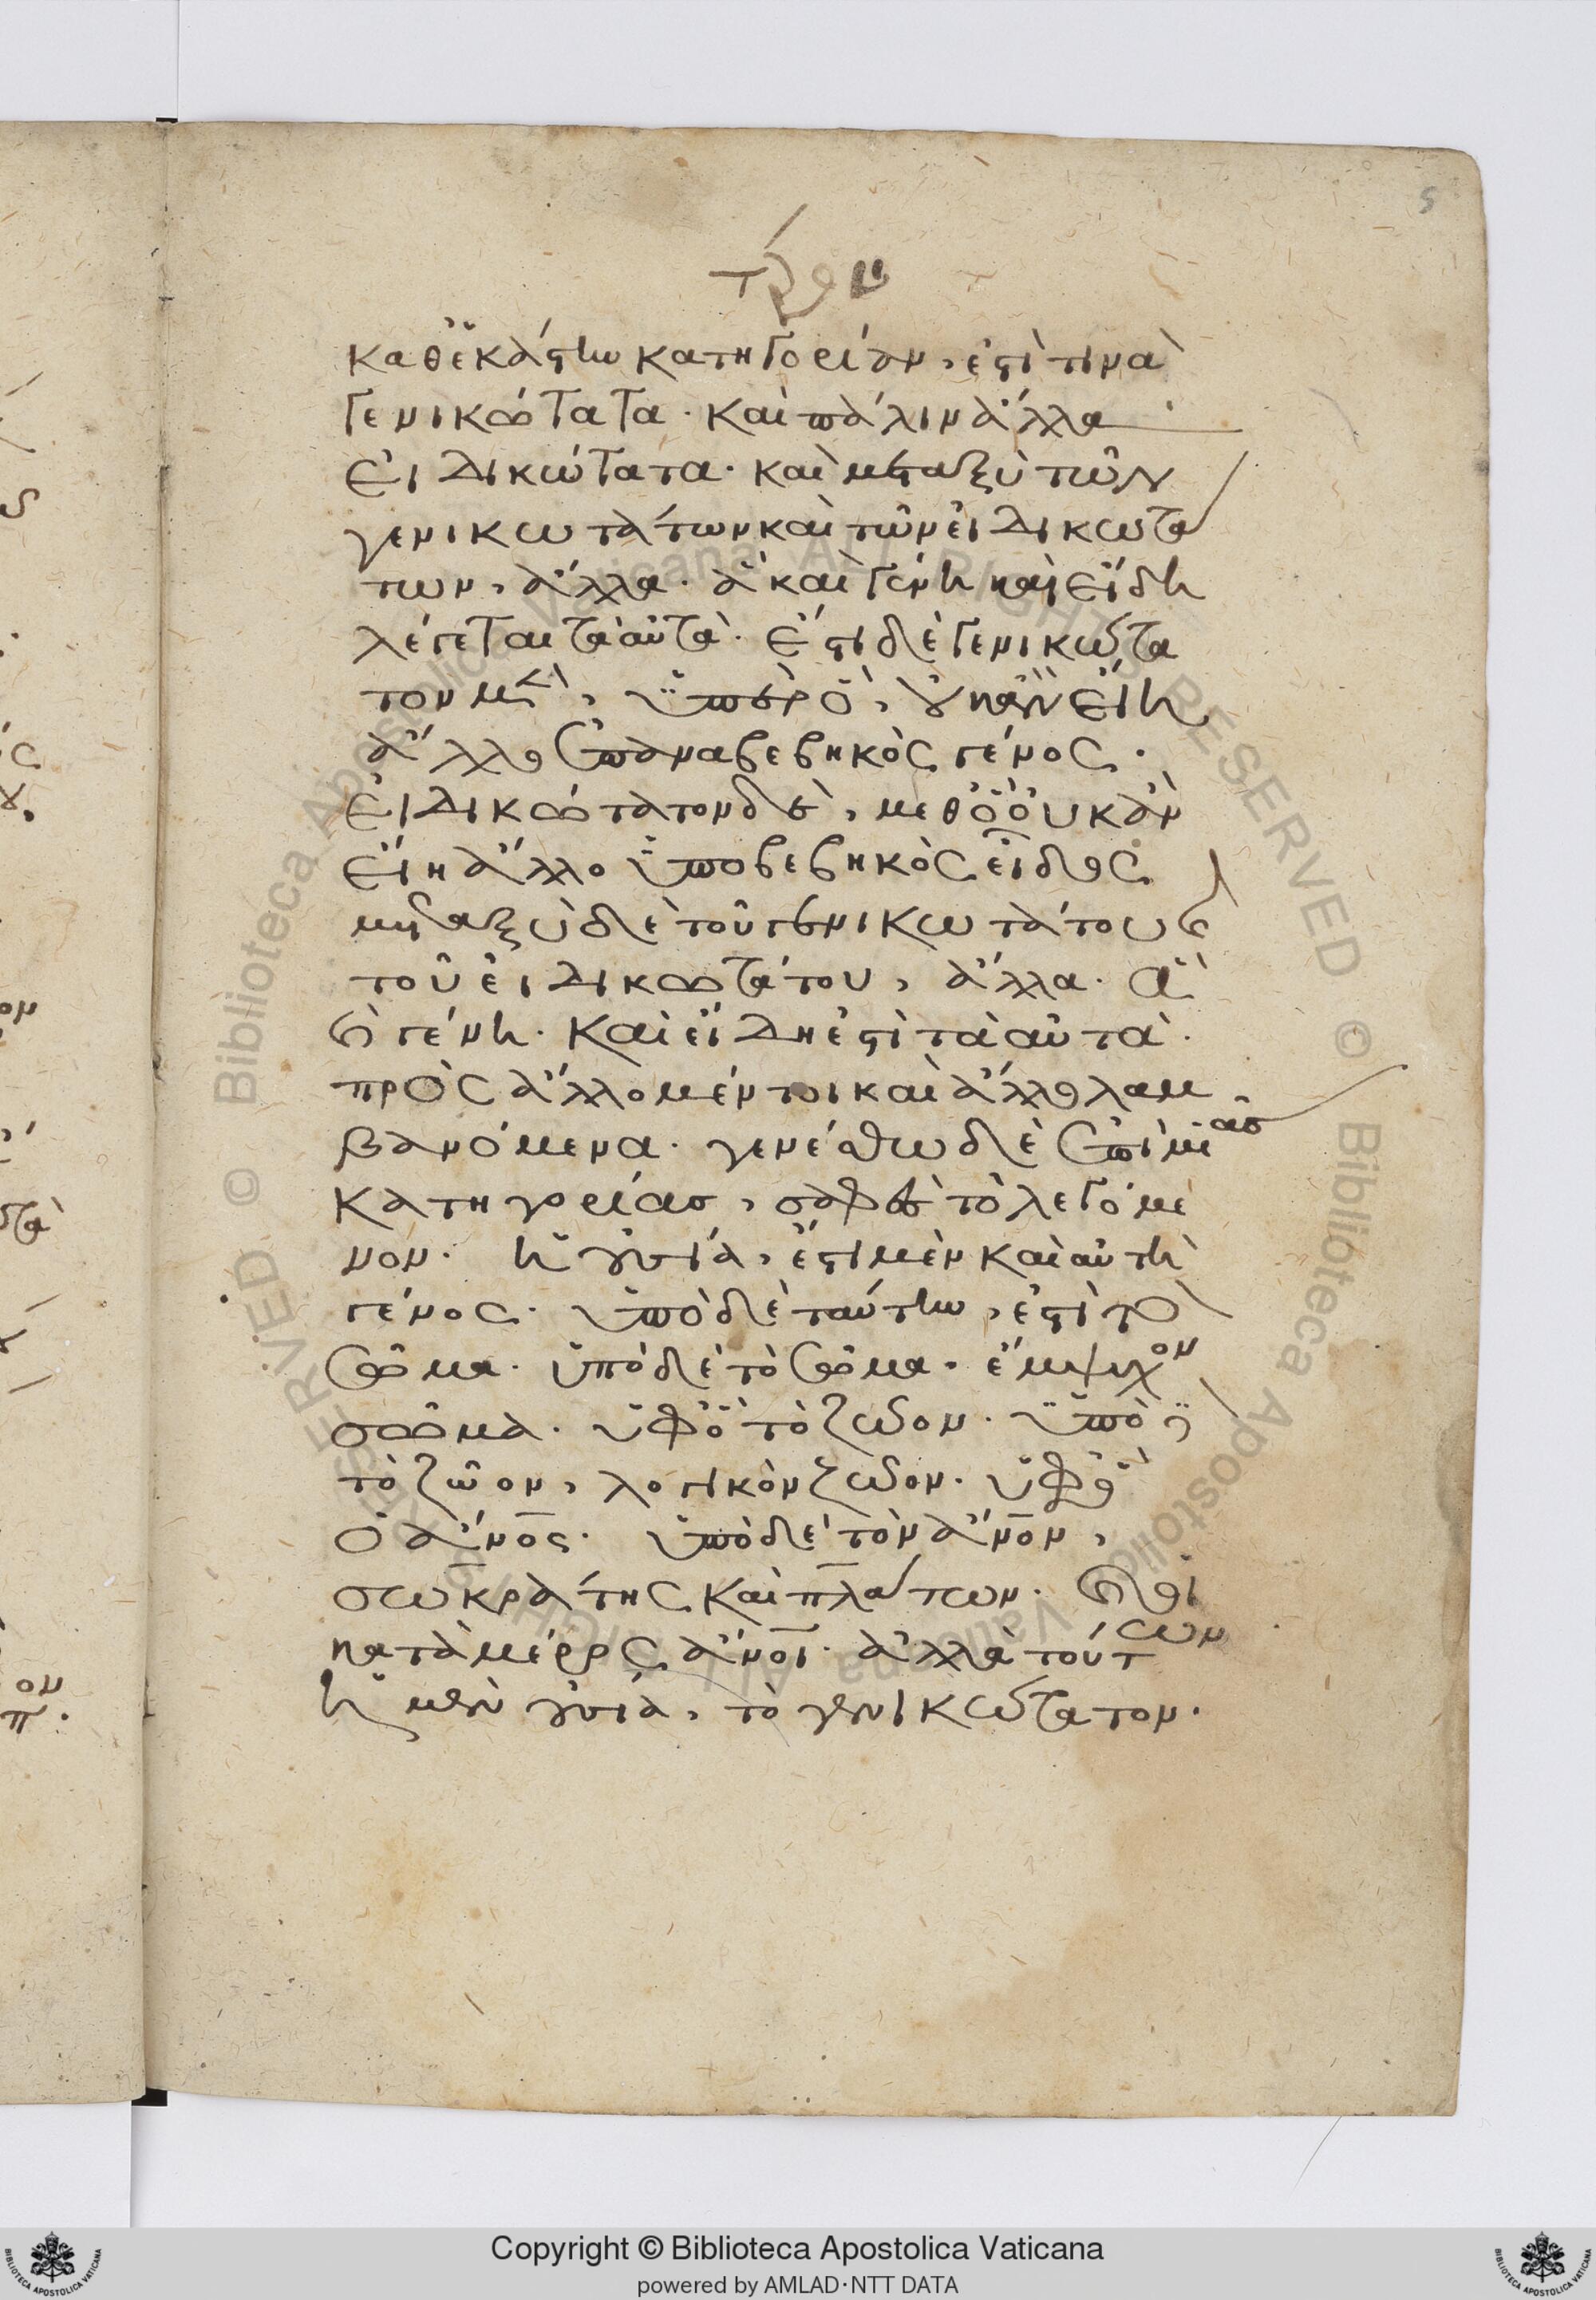 5
καθ' ἑκάστην κατηγορίαν, ἐστί τινα
γενικώτατα· καὶ πάλιν ἄλλα
εἰδικώτατα· καὶ μεταξὺ τῶν
γενικωτάτων καὶ τῶν εἰδικωτά
των, ἄλλα· ἃ καὶ γένη καὶ εἴδη
λέγεται τὰ αὐτά· ἔστι δὲ γενικώτα
τον μὲν, ὑπὲρ ὃ, οὐκ ἂν εἴη
ἄλλο ἐπαναβεβηκὸς γένος·
εἰδικώτατον δὲ, μεθ' ὃ οὐκ ἂν
εἴη ἄλλο ὑποβεβηκὸς εἶδος
μεταξὺ δὲ τοῦ γενικωτάτου καὶ
τοῦ εἰδικωτάτου, ἄλλα· ἃ
καὶ γένη· καὶ εἴδη ἐστὶ τὰ αὐτά·
πρὸς ἄλλο μέντοι καὶ ἄλλο λαμ
βανόμενα· γενέσθω δὲ ἐπὶ μιᾶς
κατηγορίας, σαφὲς τὸ λεγόμε
νον· ἡ οὐσία, ἔστι μὲν καὶ αὐτὴ
γένος· ὑπὸ δὲ ταύτην, ἐστὶ τὸ
σῶμα· ὑπὸ δὲ τὸ σῶμα· ἔμψυχον
σῶμα· ὑφ' ὃ τὸ ζῶον· ὑπὸ δὲ
τὸ ζῶον, λογικὸν ζῶον· ὑφ' ὃ
ὁ ἄν̅ο̅ς· ὑπὸ δὲ τὸν ἄν̅ο̅ν,
σωκράτης καὶ πλάτων· καὶ οἱ
κατὰ μέρος ἄν̅ο̅ι· ἀλλὰ τούτων
ἡ μὲν οὐσία, τὸ γενικώτατον·
Copyright © Biblioteca Apostolica Vaticana
powered by AMLAD·NTT DATA